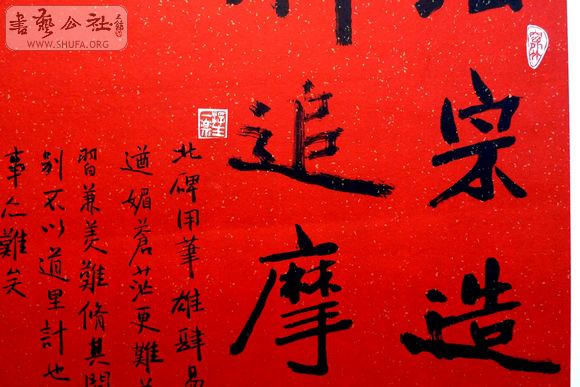 書藝公社
WWW.SHUFA.ORG
宗造
追摩
北碑用筆雄肆易
遒媚蒼茫更難
習兼美難脩其間
别不以道里計也
事亦難矣